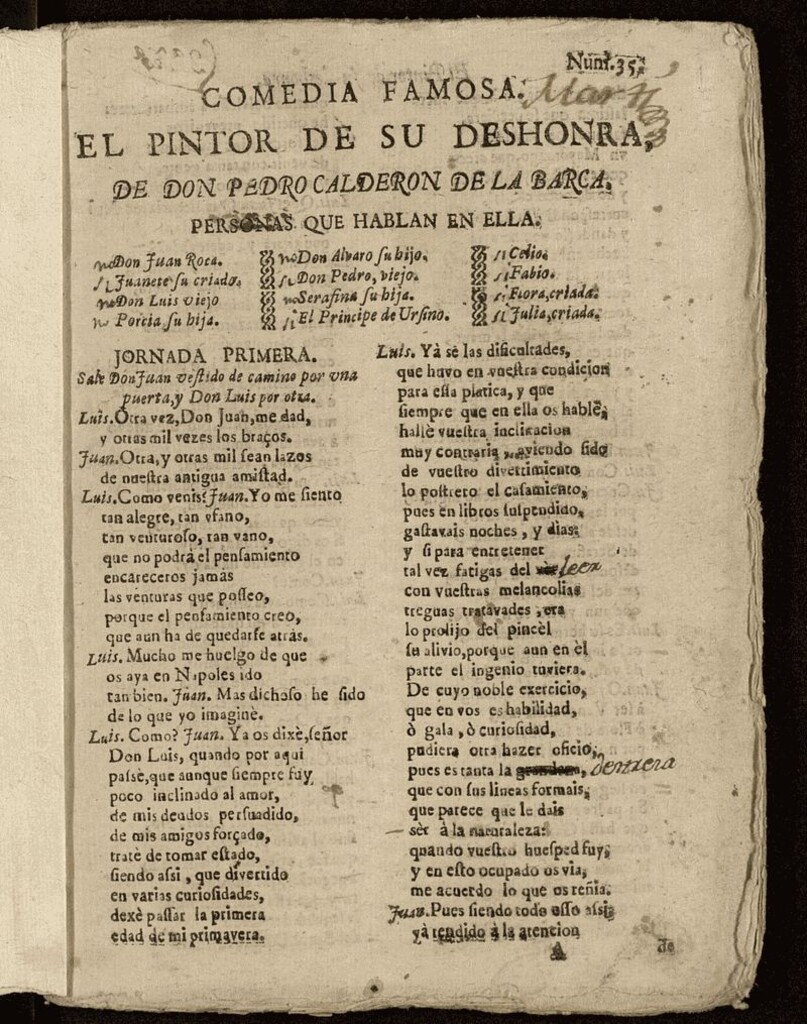 Núm. 35.
COMEDIA FAMOSA.
EL PINTOR DE SU DESHONRA,
DE DON PEDRO CALDERON DE LA BARCA.
PERSONAS QUE HABLAN EN ELLA.
Don Juan Roca.
Juanete su criado.
Don Luis viejo
Porcia su hija.
Don Alvaro su hijo.
Don Pedro, viejo.
Serafina su hija.
El Principe de Ursino.
Celio.
Fabio.
Flora, criada.
Julia, criada.
JORNADA PRIMERA.
Sale Don Juan vestido de camino por vna
puerta, y Don Luis por otra.
Luis. Otra vez, Don Juan, me dad,
y otras mil vezes los braços.
Juan. Otra, y otras mil sean lazos
de nuestra antigua amistad.
Luis. Como venis? Juan. Yo me siento
tan alegre, tan vfano,
tan venturoso, tan vano,
que no podrá el pensamiento
encareceros jamás
las venturas que posseo,
porque el pensamiento creo,
que aun ha de quedarse atrás.
Luis. Mucho me huelgo de que
os aya en Napoles ido
tan bien. Juan. Mas dichoso he sido
de lo que yo imaginè.
Luis. Como? Juan. Ya os dixè, señor
Don Luis, quando por aqui
passè, que aunque siempre fuy
poco inclinado al amor,
de mis deudos persuadido,
de mis amigos forçado,
tratè de tomar estado,
siendo assi, que divertido
en varias curiosidades,
dexè passar la primera
edad de mi primavera.
Luis. Yà sè las dificultades,
que huvo en vuestra condicion
para essa platica, y que
siempre que en ella os hablè,
hallè vuestra inclinacion
muy contraria, aviendo sido
de vuestro divertimiento
lo postrero el casamiento,
pues en libros suspendido,
gastavais noches, y dias;
y si para entretener
tal vez fatigas del leer
con vuestras melancolias
treguas tratavades, era
lo prolijo del pincèl
su alivio, porque aun en èl
parte el ingenio tuviera.
De cuyo noble exercicio,
que en vos es habilidad,
ò gala, ò curiosidad,
pudiera otra hazer oficio,
pues es tanta la destreza
que con sus lineas formais,
que parece que le dais
sèr à la naturaleza:
quando vuestro huesped fuy,
y en esto ocupado os via,
me acuerdo lo que os reñia.
Juan. Pues siendo todo esso assi,
yà rendido à la atencion
A
de